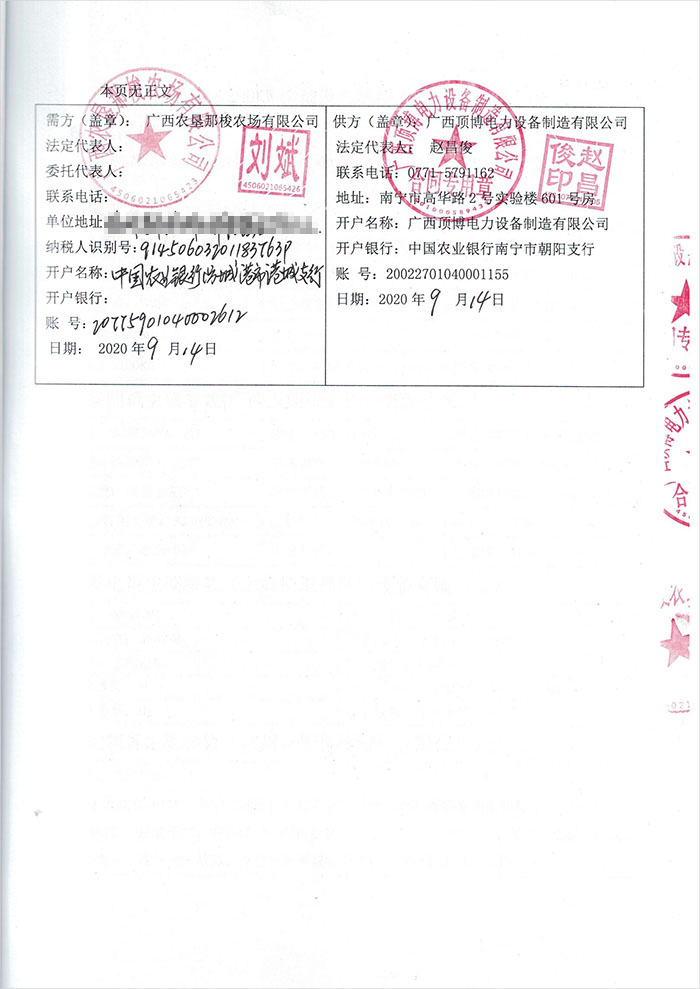 本页无正文
需方（盖章）： 广西农垦那梭农场有限公司
法定代表人：
委托代表人：
联系电话：
单位地址：
纳税人识别号：
开户名称：中国农业银行防城港市港城支行
开户银行：
账 号：20775901040002612
日期： 2020 年 9 月 14 日
刘斌
4506021065426
4506021065423
供方（盖章）：广西顶博电力设备制造有限公司
法定代表人： 赵昌俊
联系电话：0771-5791162
地址：南宁市高华路 2 号实验楼 601 号房
开户名称：广西顶博电力设备制造有限公司
开户银行：中国农业银行南宁市朝阳支行
账 号：20022701040001155
日期：2020 年 9 月 14 日
广西顶博电力设备制造有限公司
合同专用章
赵昌俊印